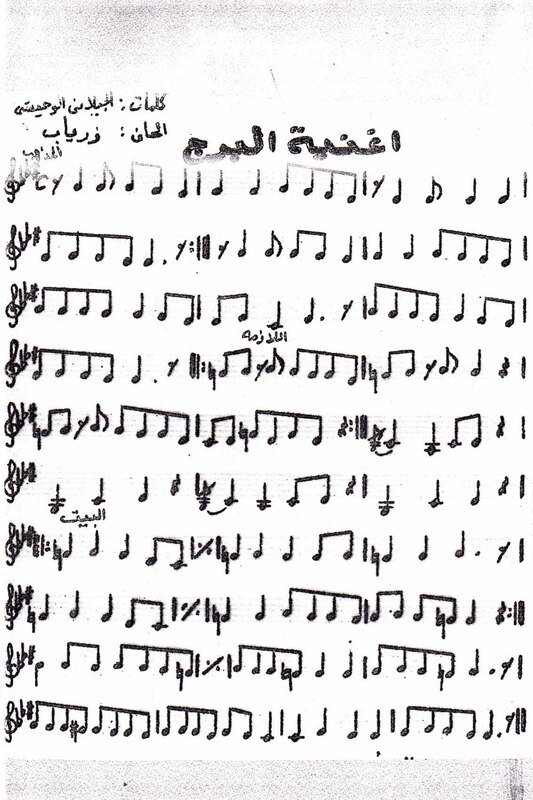 كلمات : الجيلاني الوحيشي
الحان : زرياب
اغنية البرج
المذهب
اللازمه
البيت